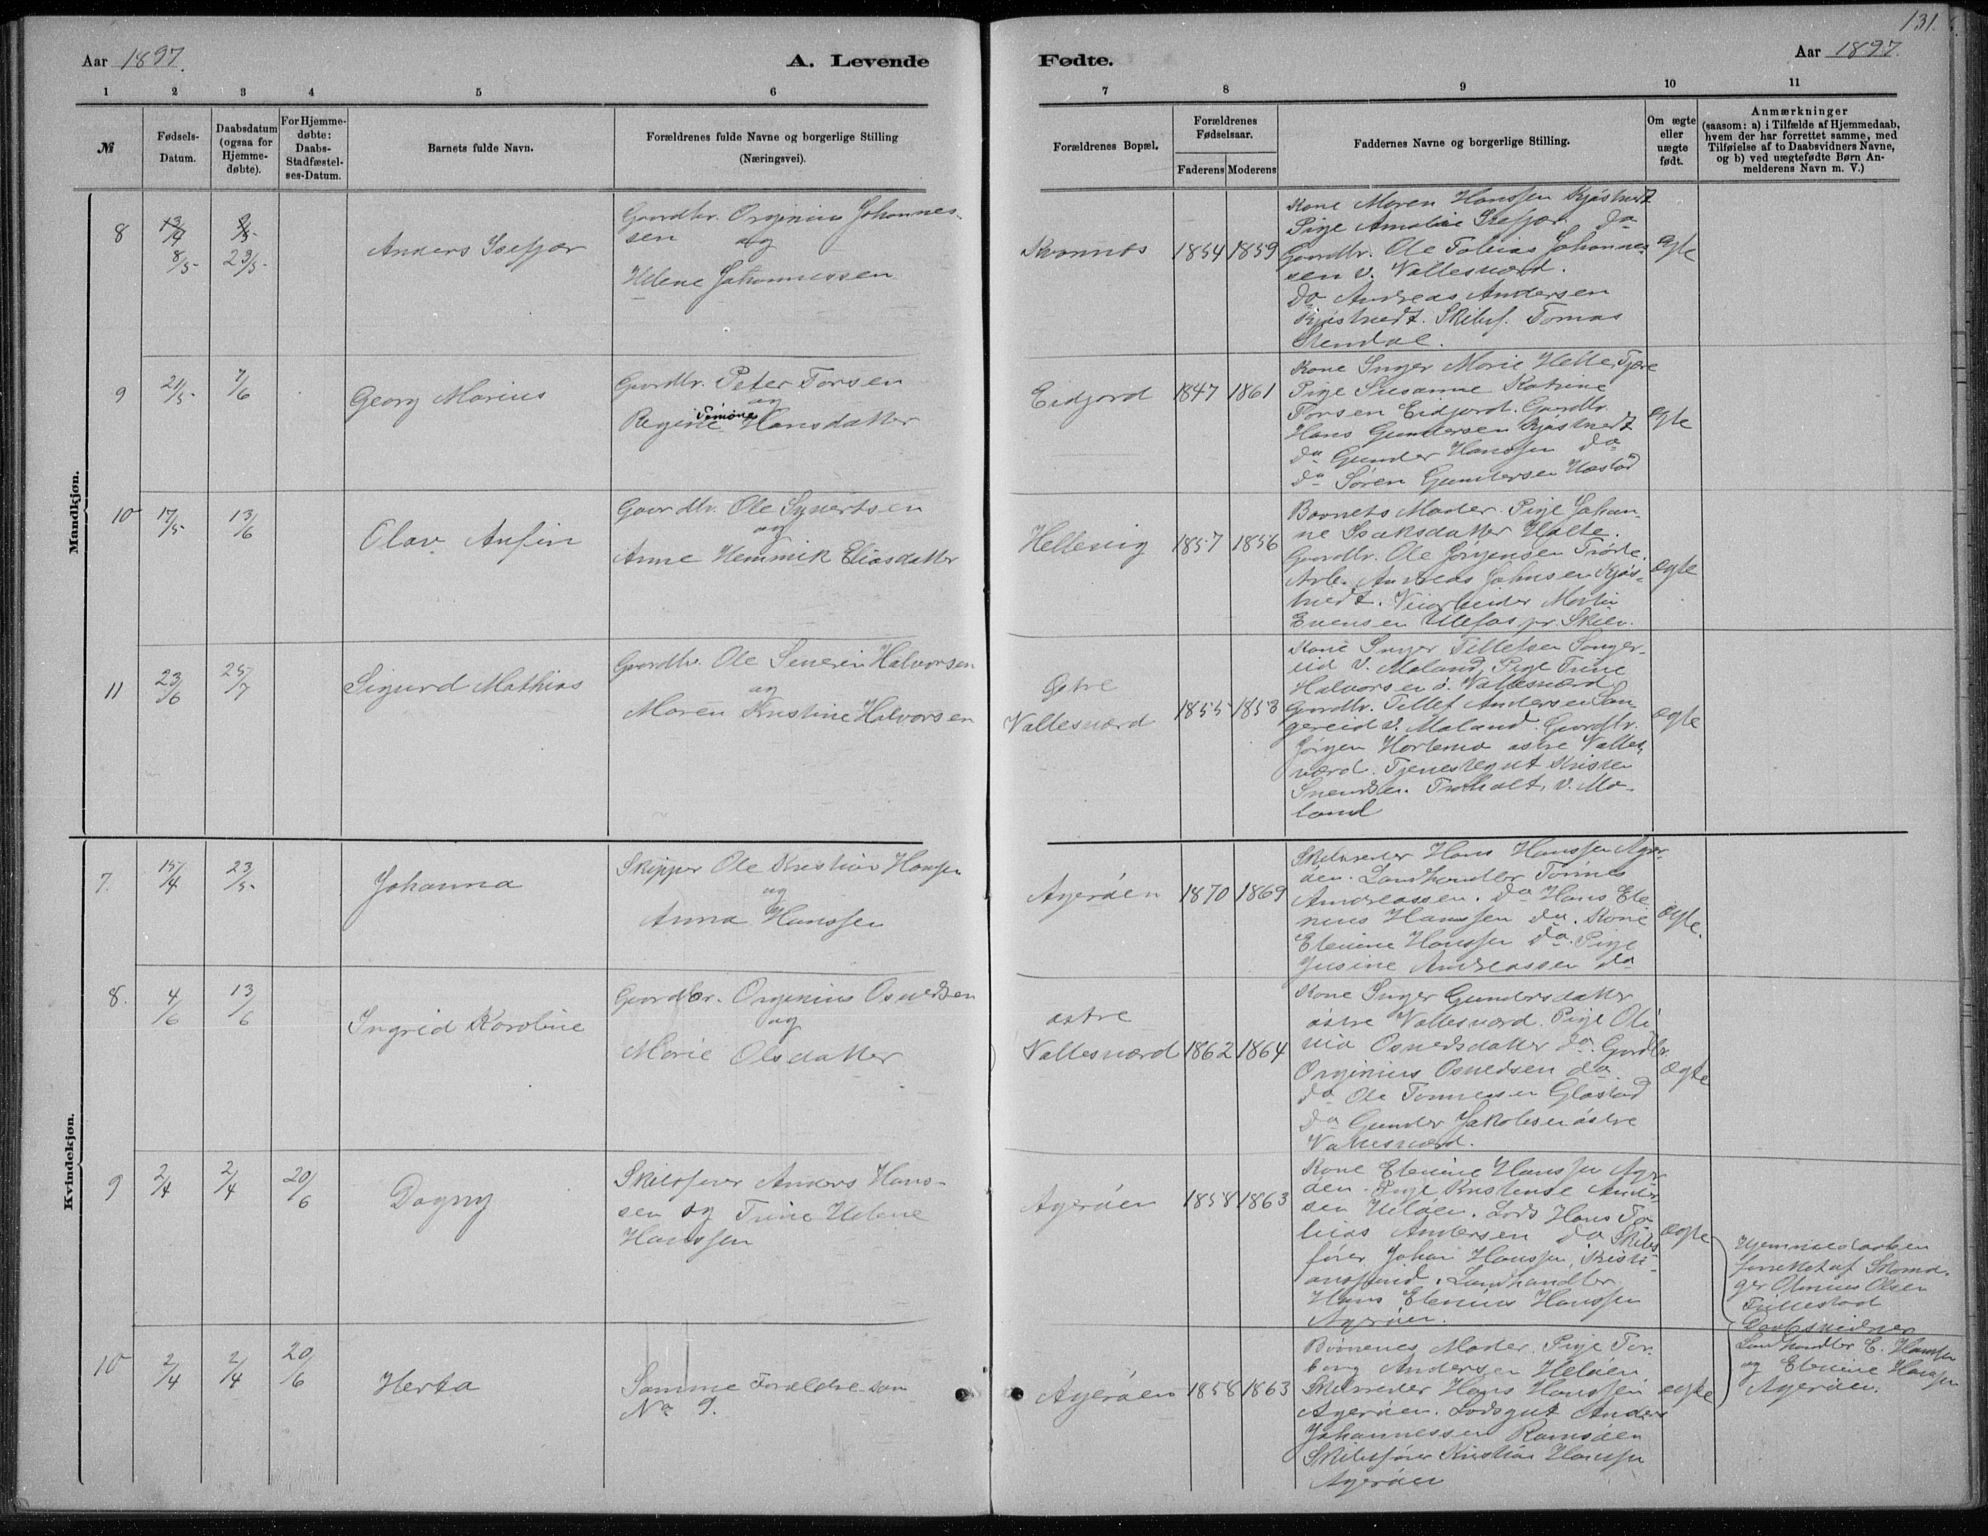 131.
Aar 1897.
A. Levende
Fødte.
Aar 1897.
1 2 3 4 5 6 7 8 9 10 11
№
Fødsels-
Datum.
Daabsdatum
(ogsaa for
Hjemme-
døbte).
For Hjemme-
døbte:
Daabs-
Stadfæstel-
ses-Datum.
Barnets fulde Navn.
Forældrenes fulde Navne og borgerlige Stilling
(Næringsvei).
Forældrenes Bopæl.
Forældrenes
Fødselsaar.
Faderens Moderens
Faddernes Navne og borgerlige Stilling.
Om ægte
eller
uægte
født.
Anmærkninger
(saasom: a) i Tilfælde af Hjemmedaab,
hvem der har forrettet samme, med
Tilføielse af to Daabsvidners Navne,
og b) ved uægtefødte Børn An-
melderens Navn m. V.)
Mandkjøn.
8
8/5
23/5
Anders Isefjær
Gaardbr. Orginius Johannes-
sen og
Helene Johannessen
1854 1859
Kone Maren Hanssen Kjøstvedt
Pige Amalie Isefjær do
Gaardbr. Ole Tobias Johannes-
sen v. Vallesværd.
do Andreas Andersen
Kjøstvedt. Skibsf. Tomas
Stendal.
Egte
9
21/5
7/6
Georg Marius
Gaardbr. Peter Torsen
og
Regine Simone Hansdatter
Eidjord
1847 1861
Kone Inger Marie Helle
Pige Susanne Katrine
Torsen Eidjord. Gaardbr.
Hans Gundersen Kjøstvedt
do Gunder Hanssen do
do Søren Gundersen Hæstad
Egte
10
17/5
13/6
Olav Anfin
Gaardbr. Ole Syvertsen
og
Anne Hennik Eliasdatter
Hellevig
1857 1856
Barnets Moder. Pige Johan-
ne Isaksdatter Holte.
Gaardbr. Ole Jørgensen Trøde.
Arb. Andreas Johnsen Kjøs-
tvedt. Veiarbeider Martin
Evensen Ulefos pr. Skien.
ægte
11
23/6
25/7
Sigurd Mathias
Gaardbr. Ole Severin Halvorsen
og
Maren Kristine Halvorsen
Østre
Vallesværd
1855 1853
Kone Inger Tellefsen Sanger-
eid V. Moland, Pige Trine
Halvorsen ø. Vallesværd
Gaardbr. Tellef Andersen San-
gereid V. Moland. Gaardbr.
Jørgen Hortemo østre Valles-
værd. Tjenestegut Kristen
Svendsen. Trøtholt, V. Mo-
land
ægte
Kvindekjøn.
7.
15/4
23/5
Johanna
Skipper Ole Kristian Hansen
og
Anna Hanssen
Agerøen
1870 1869
Skibsreder Hans Hanssen Ager-
øen. Landhandler Tønnes
Andreassen. do Hans Ele-
nius Hanssen do. Kone
Elenine Hanssen do. Pige
Jusine Andreassen do
ægte.
8.
4/6
13/6
Ingrid Karoline
Gaardbr. Orginius Osuldsen
og
Marie Olsdatter
østre
Vallesværd
1862 1864
Kone Inger Gundersdatter
østre Vallesværd. Pige Oli-
via Osuldsdatter do. Gaardbr.
Orginius Osuldsen do
do Ole Tønnessen Glastad
do Gunder Jakobsen østre
Vallesværd.
ægte
9
2/4
2/4
20/6
Dagny
Skibsfører Anders Hans-
sen og Trine Helene
Hanssen
Agerøen
1858 1863
Kone Elenine Hanssen Ager-
øen. Pige Kristense Ander-
sen Heløen. Lods Hans To-
bias Andersen do Skibs-
fører Johan Hanssen, Kristi-
anssund. Landhandler
Hans Elenius Hanssen
Agerøen.
ægte
Hjemmedaaben
forrettet af Skoma-
ger Olmius Olsen
Tillestad
Daabsvidner
Landhandler E. Hanssen
og Elenine Hanssen
Agerøen.
10
2/4
2/4
20/6
Herta
Samme Forældre som
No 9.
Agerøen
1858 1863
Børnenes Moder. Pige Tor-
borg Andersen Heløen
Skibsreder Hans Hanssen
Agerøen. Lodsgut Anders
Johannessen Ramsøen
Skibsfører Kristian Hanssen
Agerøen
ægte